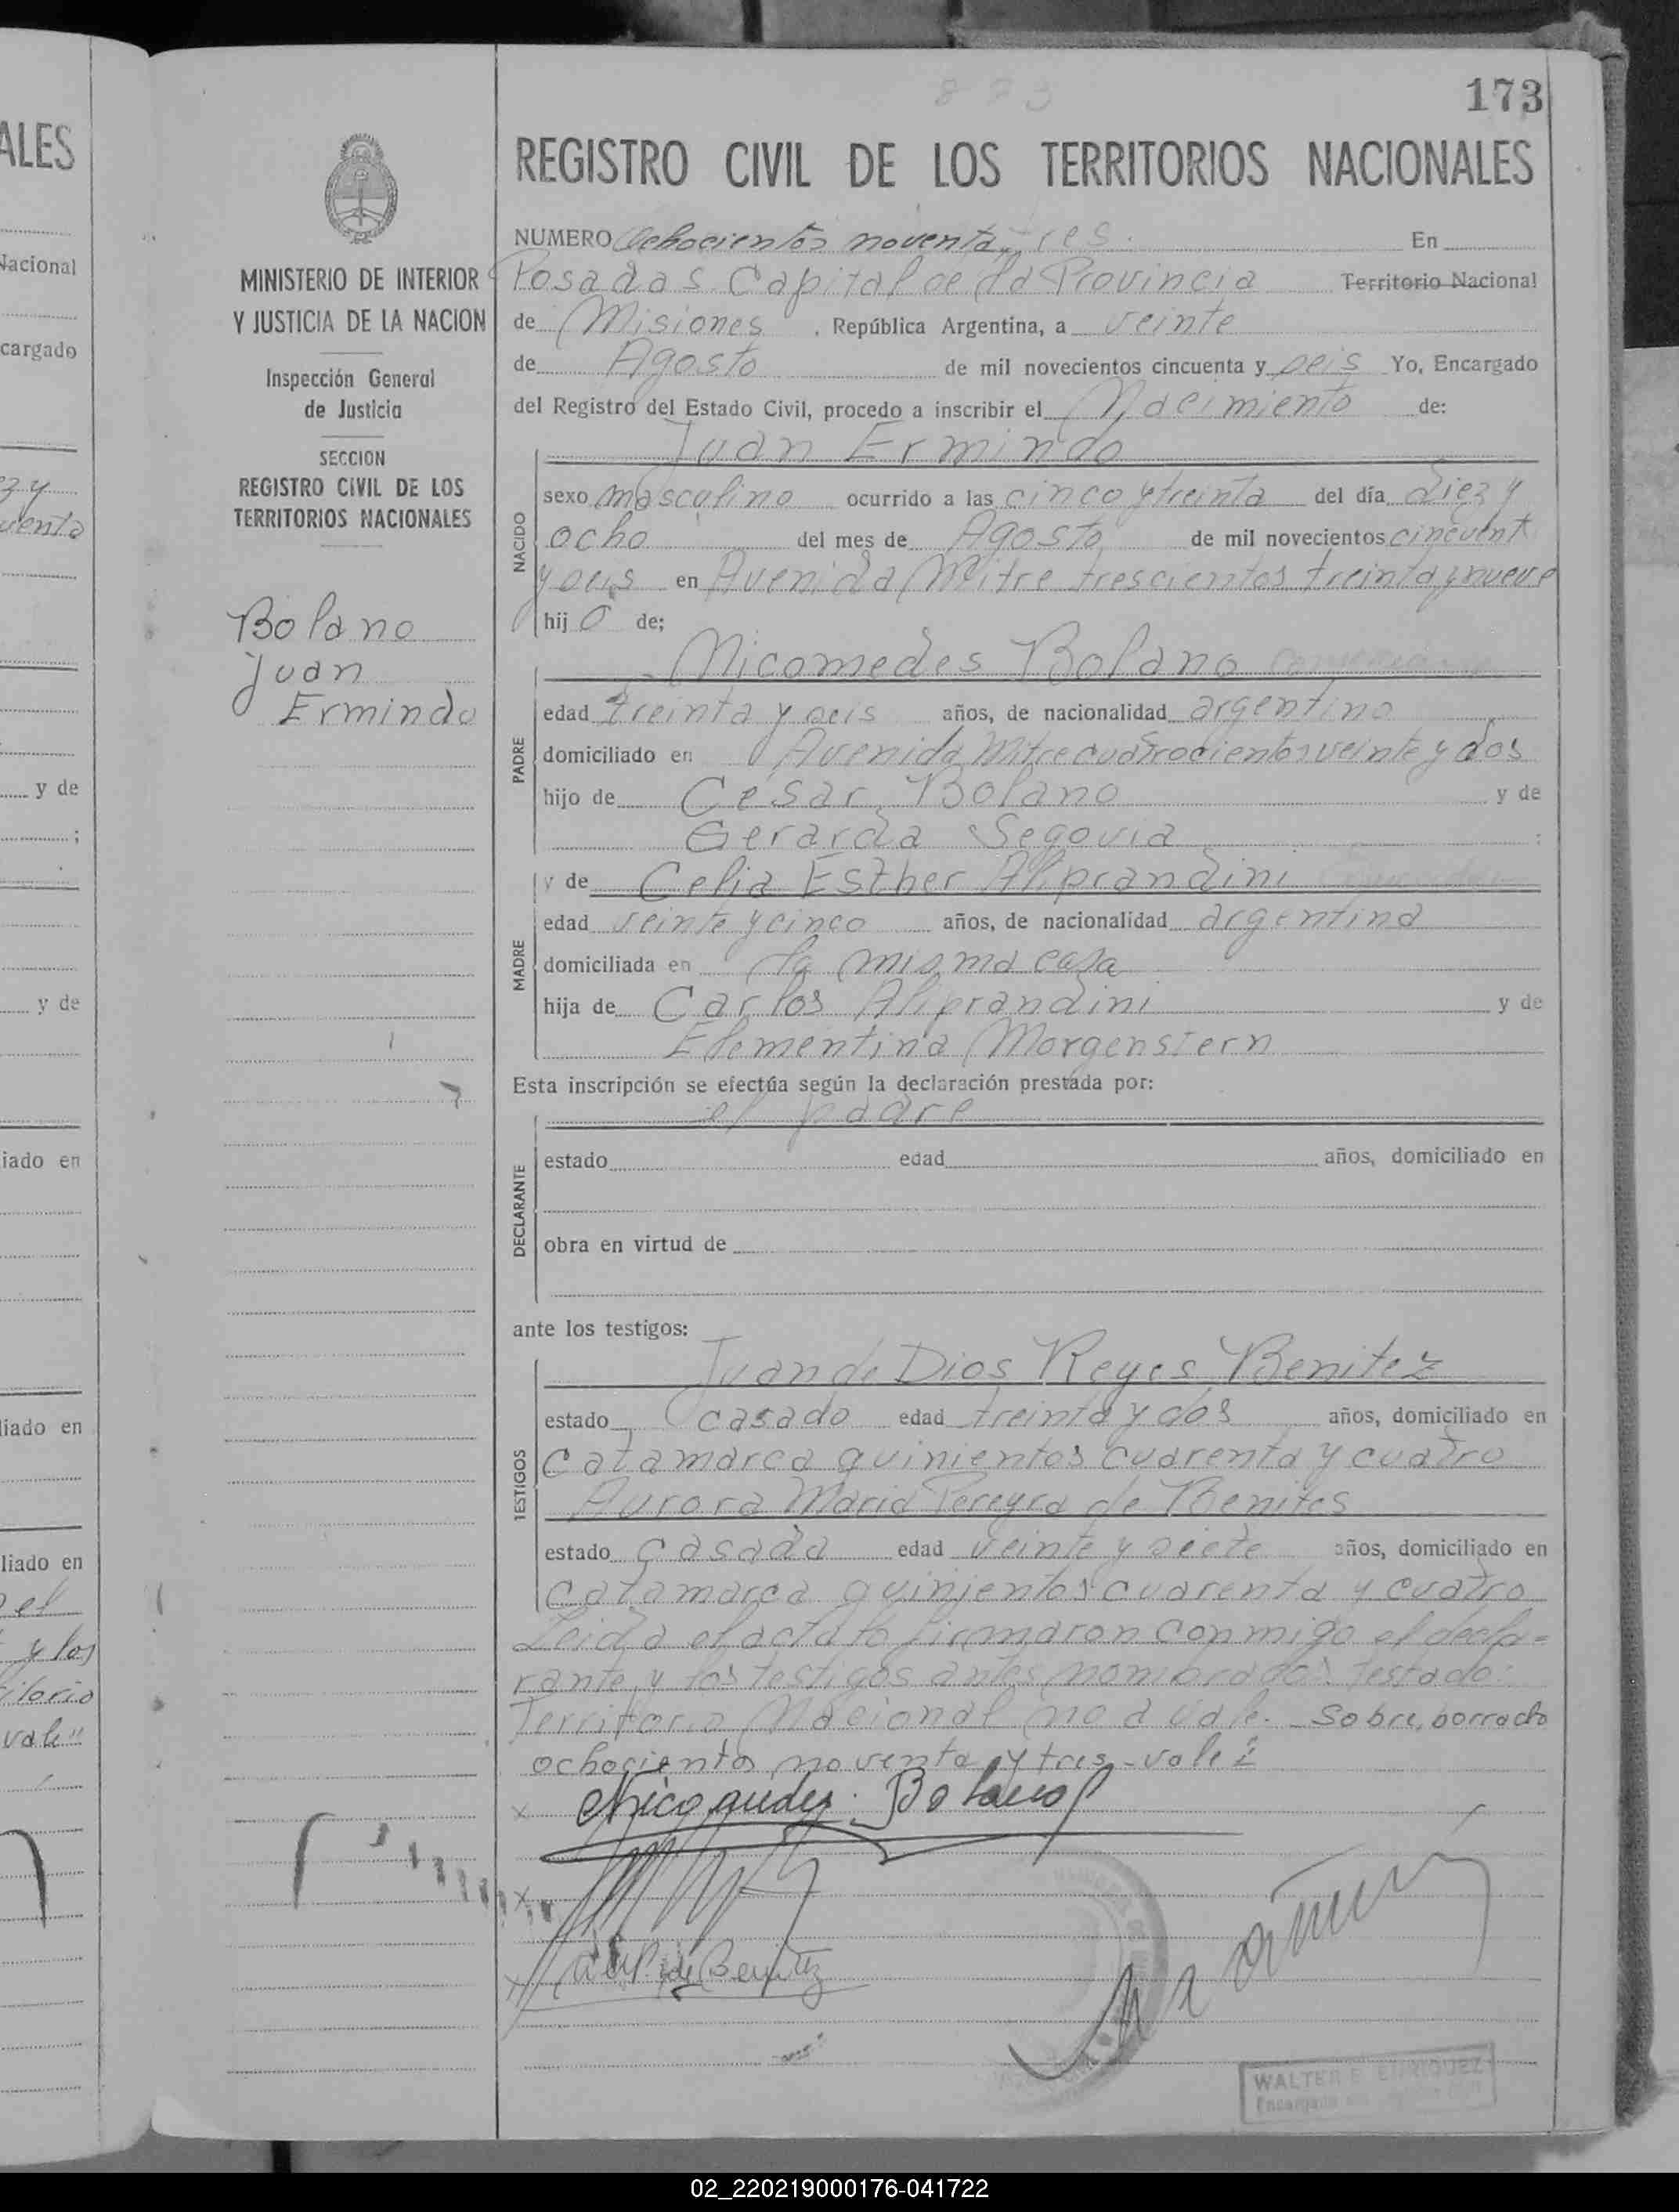 173
893
REGISTRO CIVIL DE LOS TERRITORIOS NACIONALES
MINISTERIO DE INTERIOR
Y JUSTICIA DE LA NACION
Inspección General
de Justicia
SECCION
REGISTRO CIVIL DE LOS
TERRITORIOS NACIONALES
Bolano
Juan
Ermindo
NUMERO Ochocientos noventa tres. En
Posadas Capital de la Provincia Territorio Nacional
de Misiones, República Argentina, a veinte
de Agosto de mil novecientos cincuenta y seis Yo, Encargado
del Registro del Estado Civil, procedo a inscribir el Nacimiento de:
Juan Ermindo
NACIDO
sexo masculino ocurrido a las cinco y treinta del día diez y
ocho del mes de Agosto de mil novecientos cincuent
y seis en Avenida Mitre trescientos treinta y nueve
hijo de;
Nicomedes Bolano
PADRE
edad treinta y seis años, de nacionalidad argentino
domiciliado en Avenida Mitre cuatrocientos veinte y dos
hijo de Cesar Bolano y de
Gerarda Segovia :
y de Celia Esther Aliprandini
MADRE
edad veinte y cinco años, de nacionalidad argentina
domiciliada en la misma casa
hija de Carlos Aliprandini y de
Elementina Morgenstern
Esta inscripción se efectúa según la declaración prestada por:
el padre
DECLARANTE
estado edad años, domiciliado en
obra en virtud de
ante los testigos:
Juan de Dios Reyes Benitez
TESTIGOS
estado casado edad treinta y dos años, domiciliado en
Catamarca quinientos cuarenta y cuatro
Aurora Maria Pereyra de Benites
estado Casada edad veinte y siete años, domiciliado en
Catamarca quinientos cuarenta y cuatro
Leida el acta la firmaron conmigo el decla=
rante y los testigos antes nombrados. Testado:
Territorio Nacional no a vale. Sobre, borrado
ochocientos noventa y tres - vale
Nicomedes Bolano
de Benitez
WALTER E. ENRIQUEZ
Encargado
ALES
Nacional
cargado
z y
uenta
y de
;
y de
iado en
liado en
liado en
el
y los
itorio
vale"
02_220219000176-041722